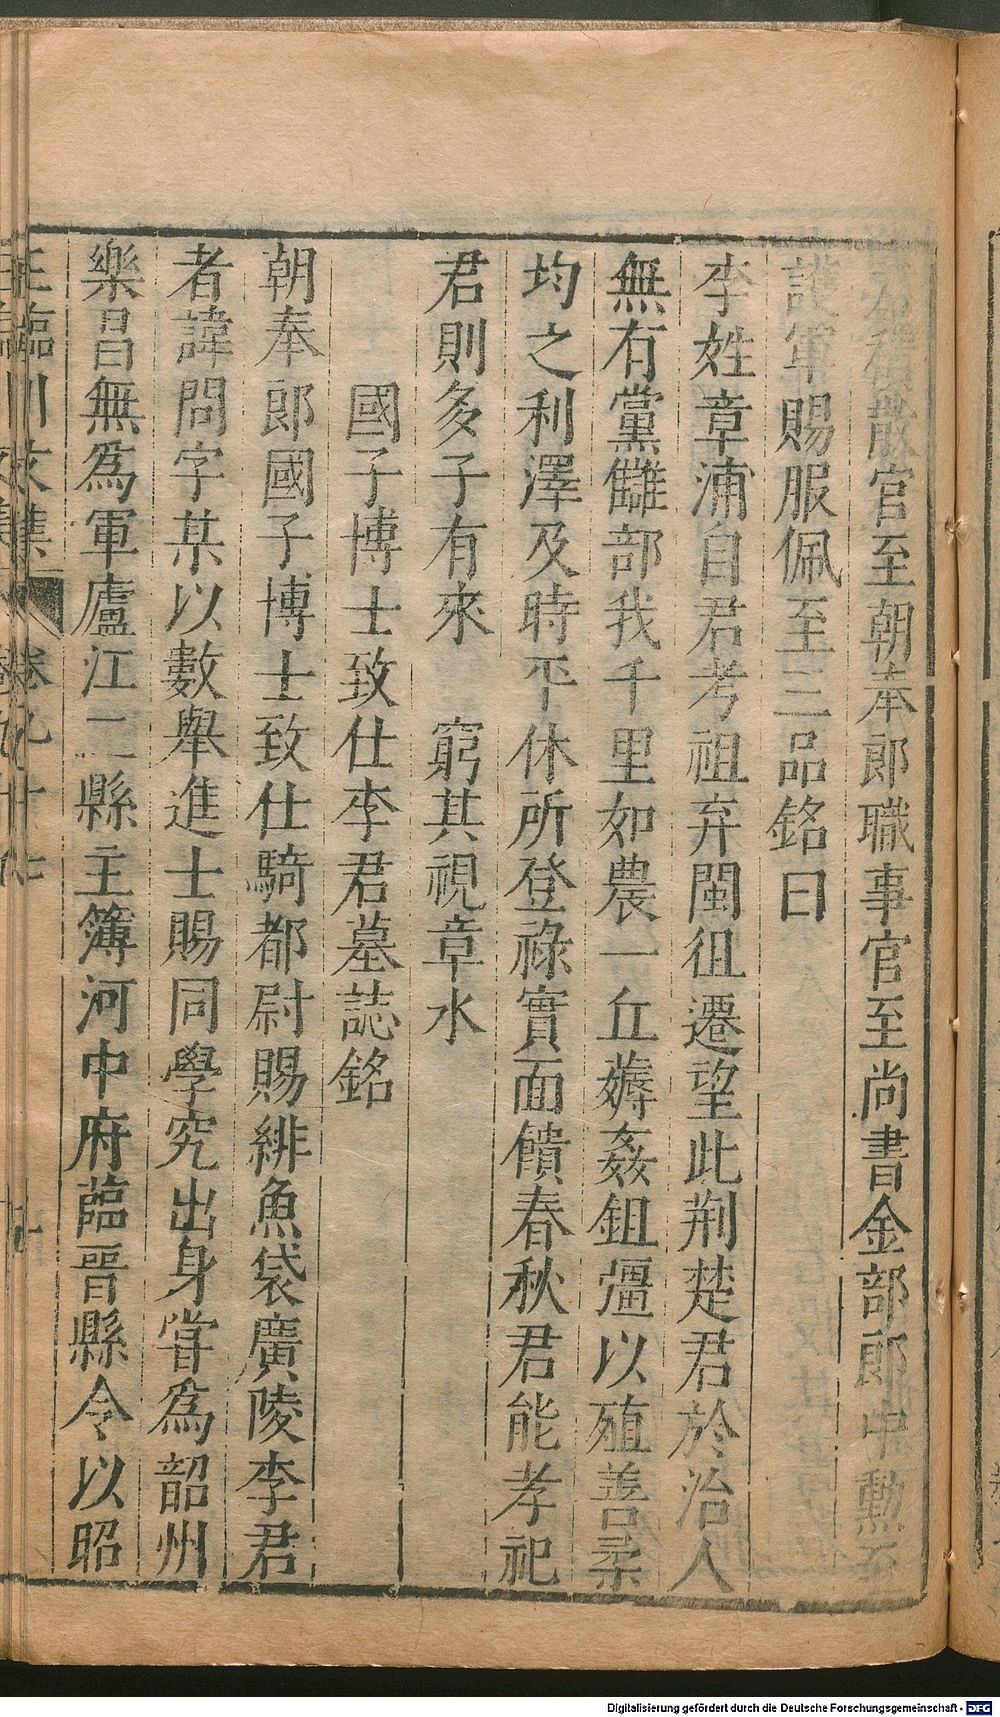 散官至朝奉郎職事官至尚書金部郎中勳至
護軍賜服佩至三品銘曰
李姓章浦自君考祖弃閩徂遷望此荆楚君於治人
無有黨讎部我千里如農一丘薅姦鉏彊以殖善柔
均之利澤及時平休所登祿實面饋春秋君能孝祀
君則多子有來　窮其視章水
國子博士致仕李君墓誌銘
朝奉郎國子博士致仕騎都尉賜緋魚袋廣陵李君
者諱問字某以數舉進士賜同學究出身嘗爲韶州
樂昌無爲軍廬江二縣主簿河中府臨晉縣令以昭
王臨川文集　卷九十七
Digitalisierung gefördert durch die Deutsche Forschungsgemeinschaft - DFG